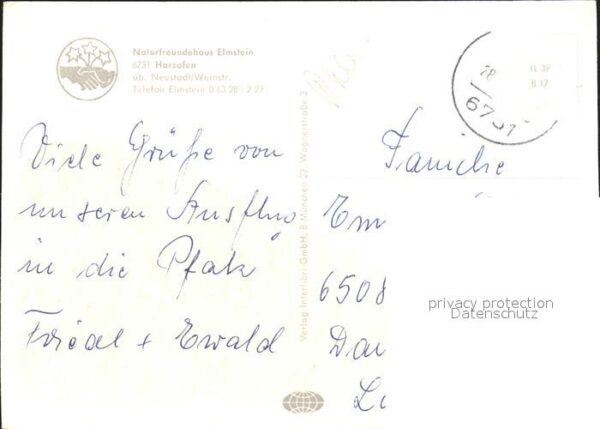 Naturfreundehaus Elmstein
6731 Harzofen
üb. Neustadt/Weinstr.
Telefon Elmstein 0 63 28 - 2 29
Viele Grüße von
unseren Ausflug
in die Pfalz
Friedel + Ewald
Verlag Interlibri GmbH, 8 München 22, Wagnerstraße 3
6731
Familie
Em
6508
privacy protection
Datenschutz